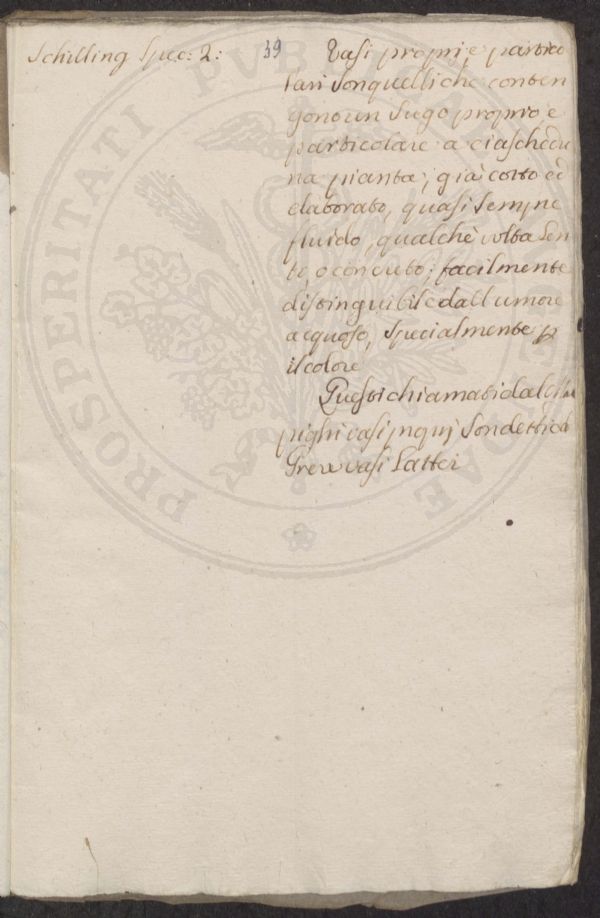 Schilling Spec: 2: 39
Vasi proprj e partico
lari son quelli che conten
gono un sugo proprio e
particolare a ciaschedu
na pianta, già cotto ed
elaborato, quasi sempre
fluido, qualche volta len
to, o concreto; facilmente
distinguibile dall umore
acquoso, specialmente p
il colore
Questi chiamati dal Mal
pighi vasi pngui son detti da
Grew vasi Lattei
PROSPERITATI PVBLICAE AVGENDAE